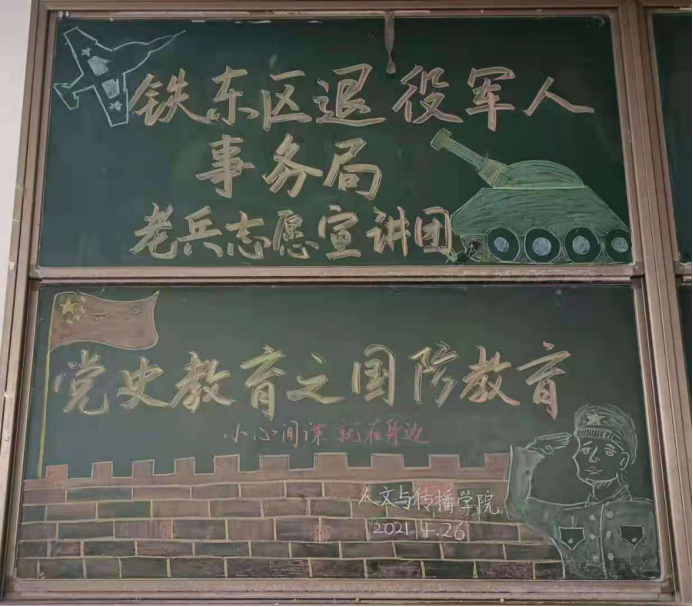 铁东区退役军人
事务局
老兵志愿宣讲团
党史教育之国防教育
小心间谍 就在身边
人文与传播学院
2021.4.26